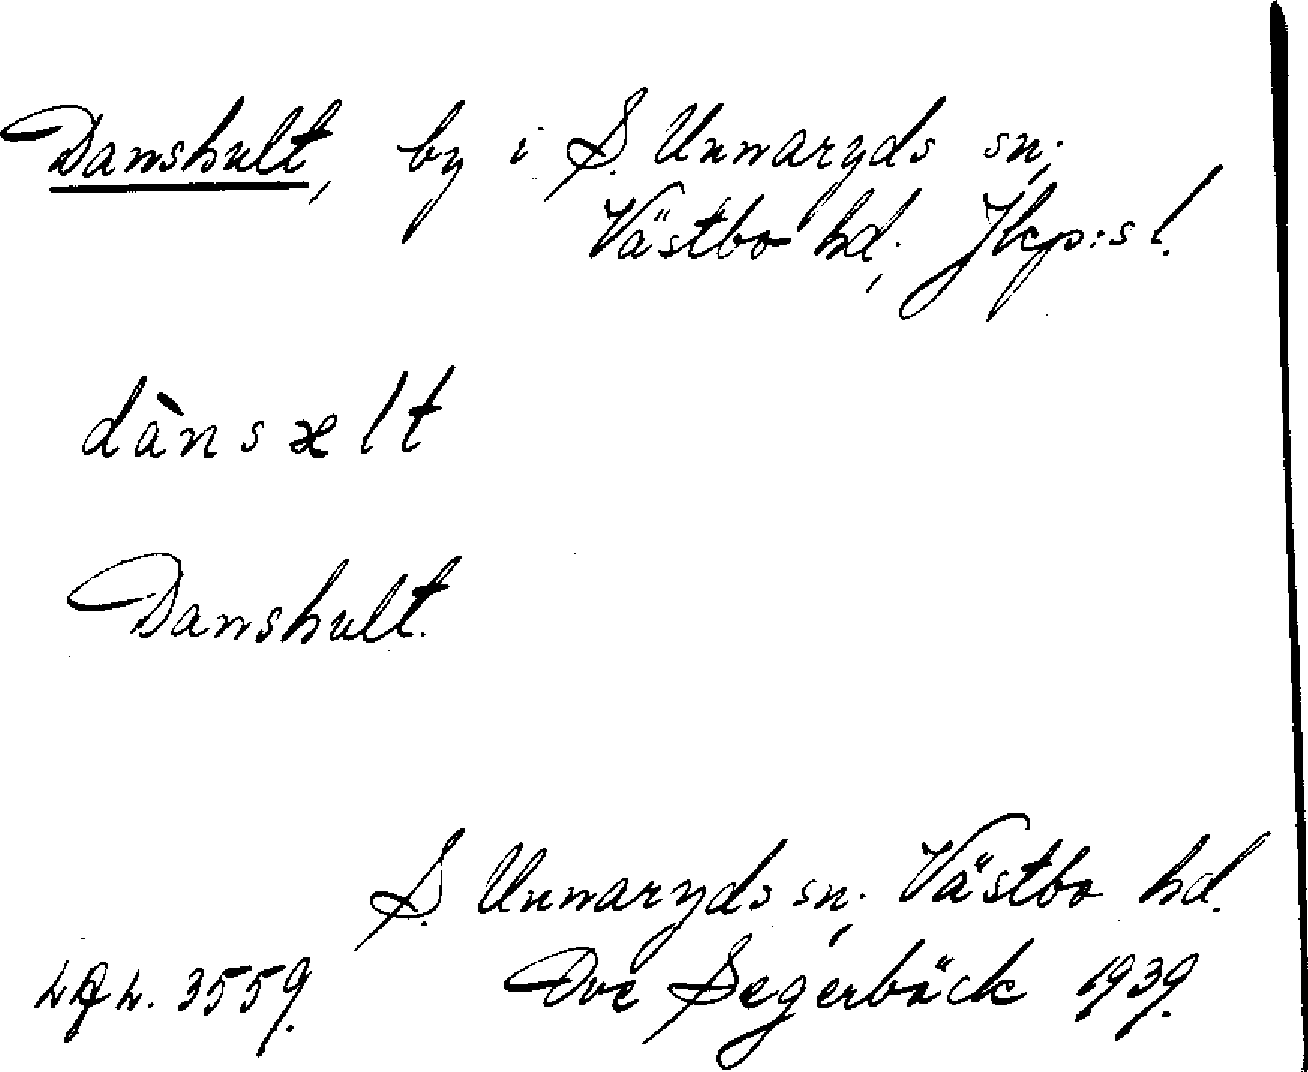 Danshult, by i S. Unnaryds sn,
Västbo hd, Jkp:s l.
dànsælt
Danshult.
S. Unnaryds sn, Västbo hd.
LAL. 3559. Ove Segerbäck 1939.